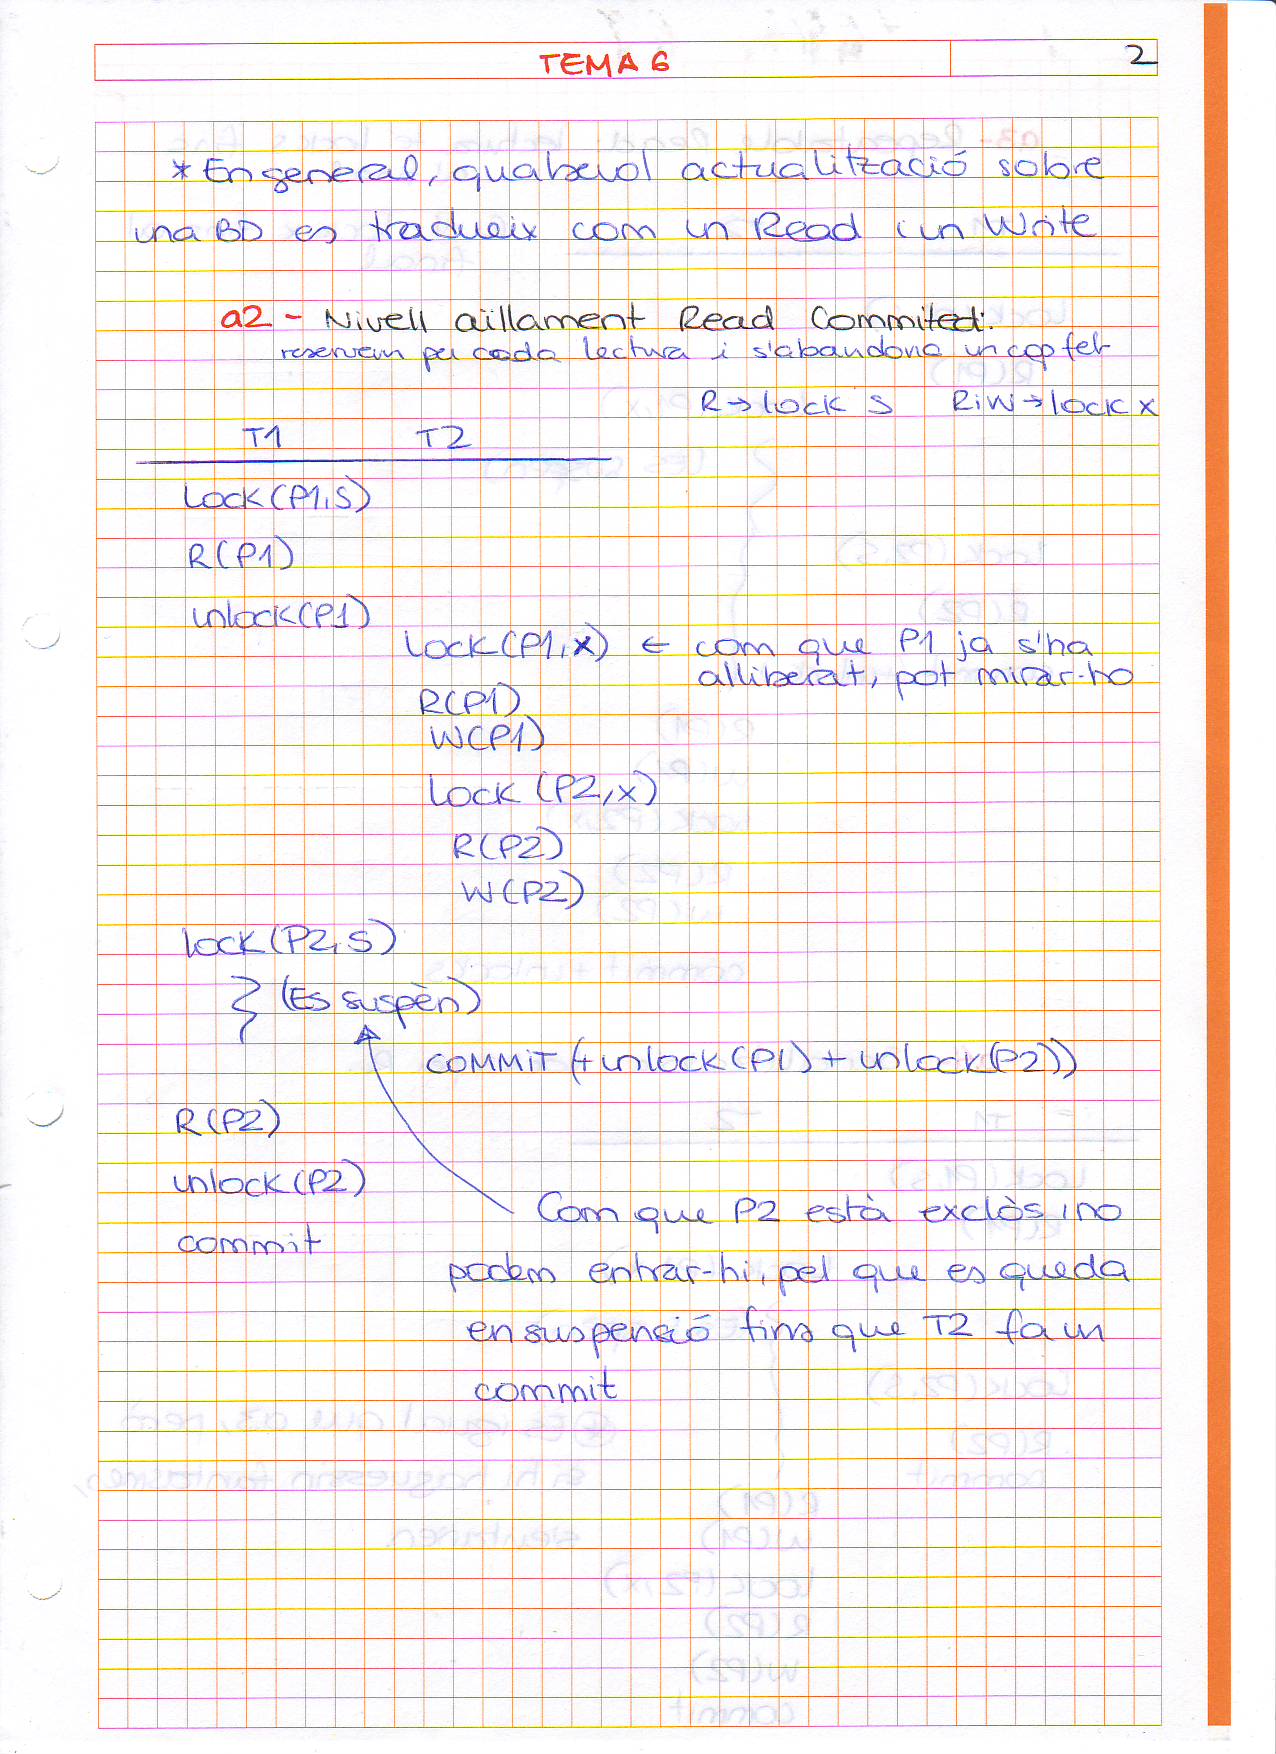 TEMA 6
2
* En general, qualsevol actualització sobre
una BD es tradueix com un Read i un Write
a2 - Nivell aïllament Read Commited:
reservem per cada lectura i s'abandona un cop fet
R → lock S RiW → lock x
T1 T2
Lock(P1,S)
R(P1)
unlock(P1)
Lock(P1,x) ← com que P1 ja s'ha
alliberat, pot mirar-ho
R(P1)
W(P1)
Lock (P2,x)
R(P2)
W(P2)
lock(P2,S)
(Es suspèn)
COMMIT (+unlock(P1) + unlock(P2))
R(P2)
unlock(P2)
commit
Com que P2 està exclòs, no
podem entrar-hi, pel que es queda
en suspensió fins que T2 fa un
commit